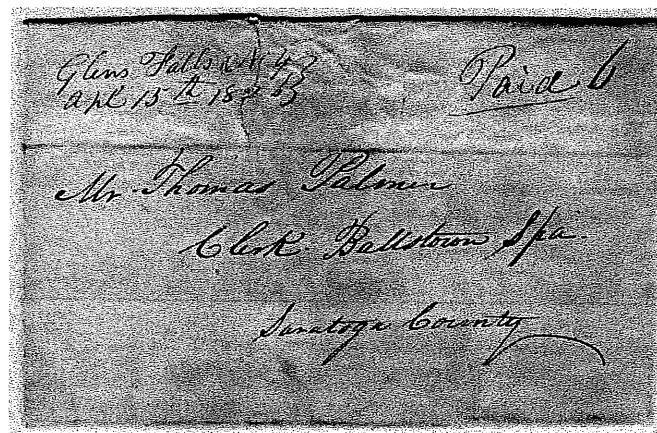 Glens Falls N Y
Apl 15th
Paid 6
Mr Thomas Palmer
Clerk Ballstown Spa
Saratoga County